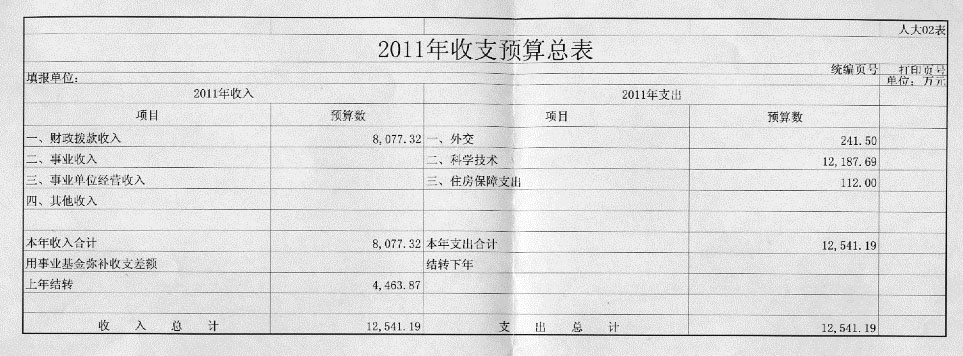 人大02表
2011年收支预算总表
统编页号 打印页号
填报单位： 单位：万元
2011年收入 2011年支出
项目 预算数 项目 预算数
一、财政拨款收入 8,077.32 一、外交 241.50
二、事业收入 二、科学技术 12,187.69
三、事业单位经营收入 三、住房保障支出 112.00
四、其他收入
本年收入合计 8,077.32 本年支出合计 12,541.19
用事业基金弥补收支差额 结转下年
上年结转 4,463.87
收 入 总 计 12,541.19 支 出 总 计 12,541.19